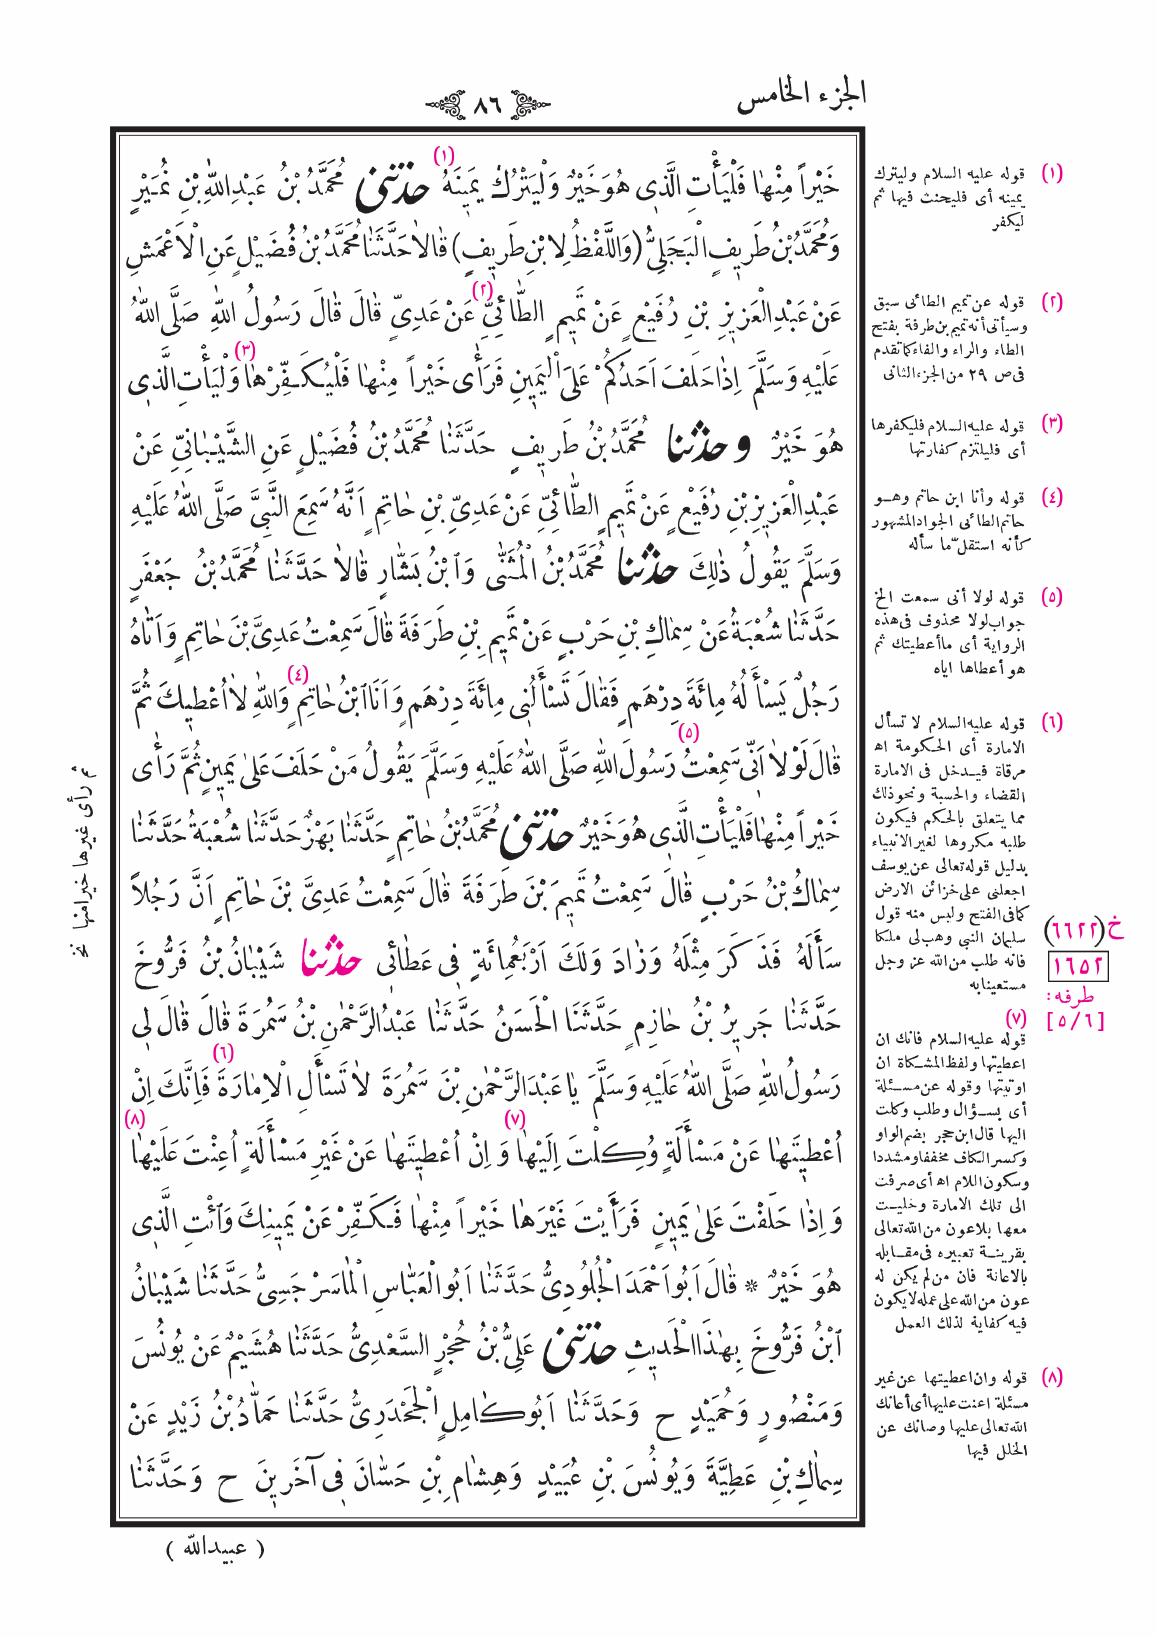 الجزء الخامس
٨٦
خَيْراً مِنْهَا فَلْيَأْتِ الَّذِى هُوَ خَيْرٌ وَلْيَتْرُكْ يَمِينَهُ (١) حَدَّثَنِى مُحَمَّدُ بْنُ عَبْدِاللّٰهِ بْنِ نُمَيْرٍ
وَمُحَمَّدُ بْنُ طَرِيفٍ الْبَجَلِيُّ (وَاللَّفْظُ لِابْنِ طَرِيفٍ) قَالَا حَدَّثَنَا مُحَمَّدُ بْنُ فُضَيْلٍ عَنِ الْاَعْمَشِ
عَنْ عَبْدِالْعَزِيزِ بْنِ رُفَيْعٍ عَنْ تَمِيمٍ الطَّائِيِّ (٢) عَنْ عَدِيٍّ قَالَ قَالَ رَسُولُ اللّٰهِ صَلَّى اللّٰهُ
عَلَيْهِ وَسَلَّمَ اِذَا حَلَفَ اَحَدُكُمْ عَلَى الْيَمِينِ فَرَأَى خَيْراً مِنْهَا فَلْيُكَفِّرْهَا (٣) وَلْيَأْتِ الَّذِى
هُوَ خَيْرٌ و حدثنا مُحَمَّدُ بْنُ طَرِيفٍ حَدَّثَنَا مُحَمَّدُ بْنُ فُضَيْلٍ عَنِ الشَّيْبَانِيِّ عَنْ
عَبْدِالْعَزِيزِ بْنِ رُفَيْعٍ عَنْ تَمِيمٍ الطَّائِيِّ عَنْ عَدِيِّ بْنِ حَاتِمٍ اَنَّهُ سَمِعَ النَّبِيَّ صَلَّى اللّٰهُ عَلَيْهِ
وَسَلَّمَ يَقُولُ ذٰلِكَ حدثنا مُحَمَّدُ بْنُ الْمُثَنَّى وَابْنُ بَشَّارٍ قَالَا حَدَّثَنَا مُحَمَّدُ بْنُ جَعْفَرٍ
حَدَّثَنَا شُعْبَةُ عَنْ سِمَاكِ بْنِ حَرْبٍ عَنْ تَمِيمِ بْنِ طَرَفَةَ قَالَ سَمِعْتُ عَدِيَّ بْنَ حَاتِمٍ وَاَتَاهُ
رَجُلٌ يَسْأَلُهُ مِائَةَ دِرْهَمٍ فَقَالَ تَسْأَلُنِى مِائَةَ دِرْهَمٍ وَاَنَا ابْنُ حَاتِمٍ (٤) وَاللّٰهِ لَا اُعْطِيكَ ثُمَّ
قَالَ لَوْلَا اَنِّى سَمِعْتُ (٥) رَسُولَ اللّٰهِ صَلَّى اللّٰهُ عَلَيْهِ وَسَلَّمَ يَقُولُ مَنْ حَلَفَ عَلَى يَمِينٍ ثُمَّ رَأَى
خَيْراً مِنْهَا فَلْيَأْتِ الَّذِى هُوَ خَيْرٌ حدثنى مُحَمَّدُ بْنُ حَاتِمٍ حَدَّثَنَا بَهْزٌ حَدَّثَنَا شُعْبَةُ حَدَّثَنَا
سِمَاكُ بْنُ حَرْبٍ قَالَ سَمِعْتُ تَمِيمَ بْنَ طَرَفَةَ قَالَ سَمِعْتُ عَدِيَّ بْنَ حَاتِمٍ اَنَّ رَجُلاً
سَأَلَهُ فَذَكَرَ مِثْلَهُ وَزَادَ وَلَكَ اَرْبَعُمِائَةٍ فِى عَطَائِى حدثنا شَيْبَانُ بْنُ فَرُّوخَ
حَدَّثَنَا جَرِيرُ بْنُ حَازِمٍ حَدَّثَنَا الْحَسَنُ حَدَّثَنَا عَبْدُالرَّحْمٰنِ بْنُ سَمُرَةَ قَالَ قَالَ لِى
رَسُولُ اللّٰهِ صَلَّى اللّٰهُ عَلَيْهِ وَسَلَّمَ يَا عَبْدَالرَّحْمٰنِ بْنَ سَمُرَةَ لَا تَسْأَلِ الْاِمَارَةَ (٦) فَاِنَّكَ اِنْ
اُعْطِيتَهَا عَنْ مَسْأَلَةٍ وُكِلْتَ اِلَيْهَا (٧) وَاِنْ اُعْطِيتَهَا عَنْ غَيْرِ مَسْأَلَةٍ اُعِنْتَ عَلَيْهَا (٨)
وَاِذَا حَلَفْتَ عَلَى يَمِينٍ فَرَأَيْتَ غَيْرَهَا خَيْراً مِنْهَا فَكَفِّرْ عَنْ يَمِينِكَ وَائْتِ الَّذِى
هُوَ خَيْرٌ * قَالَ اَبُو اَحْمَدَ الْجُلُودِيُّ حَدَّثَنَا اَبُو الْعَبَّاسِ الْمَاسَرْجَسِيُّ حَدَّثَنَا شَيْبَانُ
ابْنُ فَرُّوخَ بِهٰذَا الْحَدِيثِ حدثنى عَلِيُّ بْنُ حُجْرٍ السَّعْدِيُّ حَدَّثَنَا هُشَيْمٌ عَنْ يُونُسَ
وَمَنْصُورٍ وَحُمَيْدٍ ح وَحَدَّثَنَا اَبُو كَامِلٍ الْجَحْدَرِيُّ حَدَّثَنَا حَمَّادُ بْنُ زَيْدٍ عَنْ
سِمَاكِ بْنِ عَطِيَّةَ وَيُونُسَ بْنِ عُبَيْدٍ وَهِشَامِ بْنِ حَسَّانَ فِى آخَرِينَ ح وَحَدَّثَنَا
( عبيدالله )
(١) قوله عليه السلام وليترك
يمينه أى فليحنث فيها ثم
ليكفر
(٢) قوله عن تميم الطائى سبق
وسيأتى أنه تميم بن طرفة بفتح
الطاء والراء والفاء كما تقدم
فى ص ٢٩ من الجزء الثانى
(٣) قوله عليه السلام فليكفرها
أى فليلتزم كفارتها
(٤) قوله وأنا ابن حاتم وهو
حاتم الطائى الجواد المشهور
كأنه استقلّ ما سأله
(٥) قوله لولا أنى سمعت الخ
جواب لولا محذوف فى هذه
الرواية أى ما أعطيتك ثم
هو أعطاها اياه
(٦) قوله عليه السلام لا تسأل
الامارة أى الحكومة اه
مرقاة فيدخل فى الامارة
القضاء والحسبة ونحو ذلك
مما يتعلق بالحكم فيكون
طلبه مكروها لغير الانبياء
بدليل قوله تعالى عن يوسف
اجعلنى على خزائن الارض
كما فى الفتح وليس منه قول
سليمان النبى وهب لى ملكا
فانه طلب من الله عز وجل
مستعينا به
(٧)
قوله عليه السلام فانك ان
اعطيتها ولفظ المشكاة ان
اوتيتها وقوله عن مسئلة
أى بسؤال وطلب وكلت
اليها قال ابن حجر بضم الواو
وكسر الكاف مخففا ومشددا
وسكون اللام اه أى صرفت
الى تلك الامارة وخليت
معها بلا عون من الله تعالى
بقرينة تعبيره فى مقابله
بالاعانة فان من لم يكن له
عون من الله على عمله لا يكون
فيه كفاية لذلك العمل
(٨) قوله وان اعطيتها عن غير
مسئلة اعنت عليها أى أعانك
الله تعالى عليها وصانك عن
الخلل فيها
خ (٦٦٢٢)
١٦٥٢
طرفه :
[ ٥/٦ ]
ثم رأى غيرها خيرا منها نخ